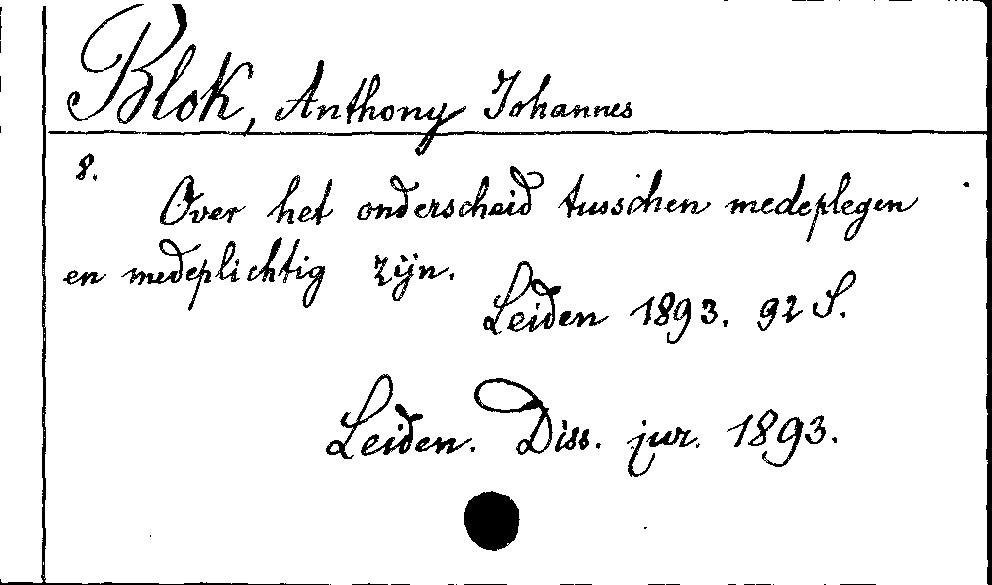 Blok, Anthony Johannes
8.
Over het onderscheid tusschen medeplegen
en medeplichtig zijn.
Leiden 1893. 92 S.
Leiden. Diss. jur. 1893.